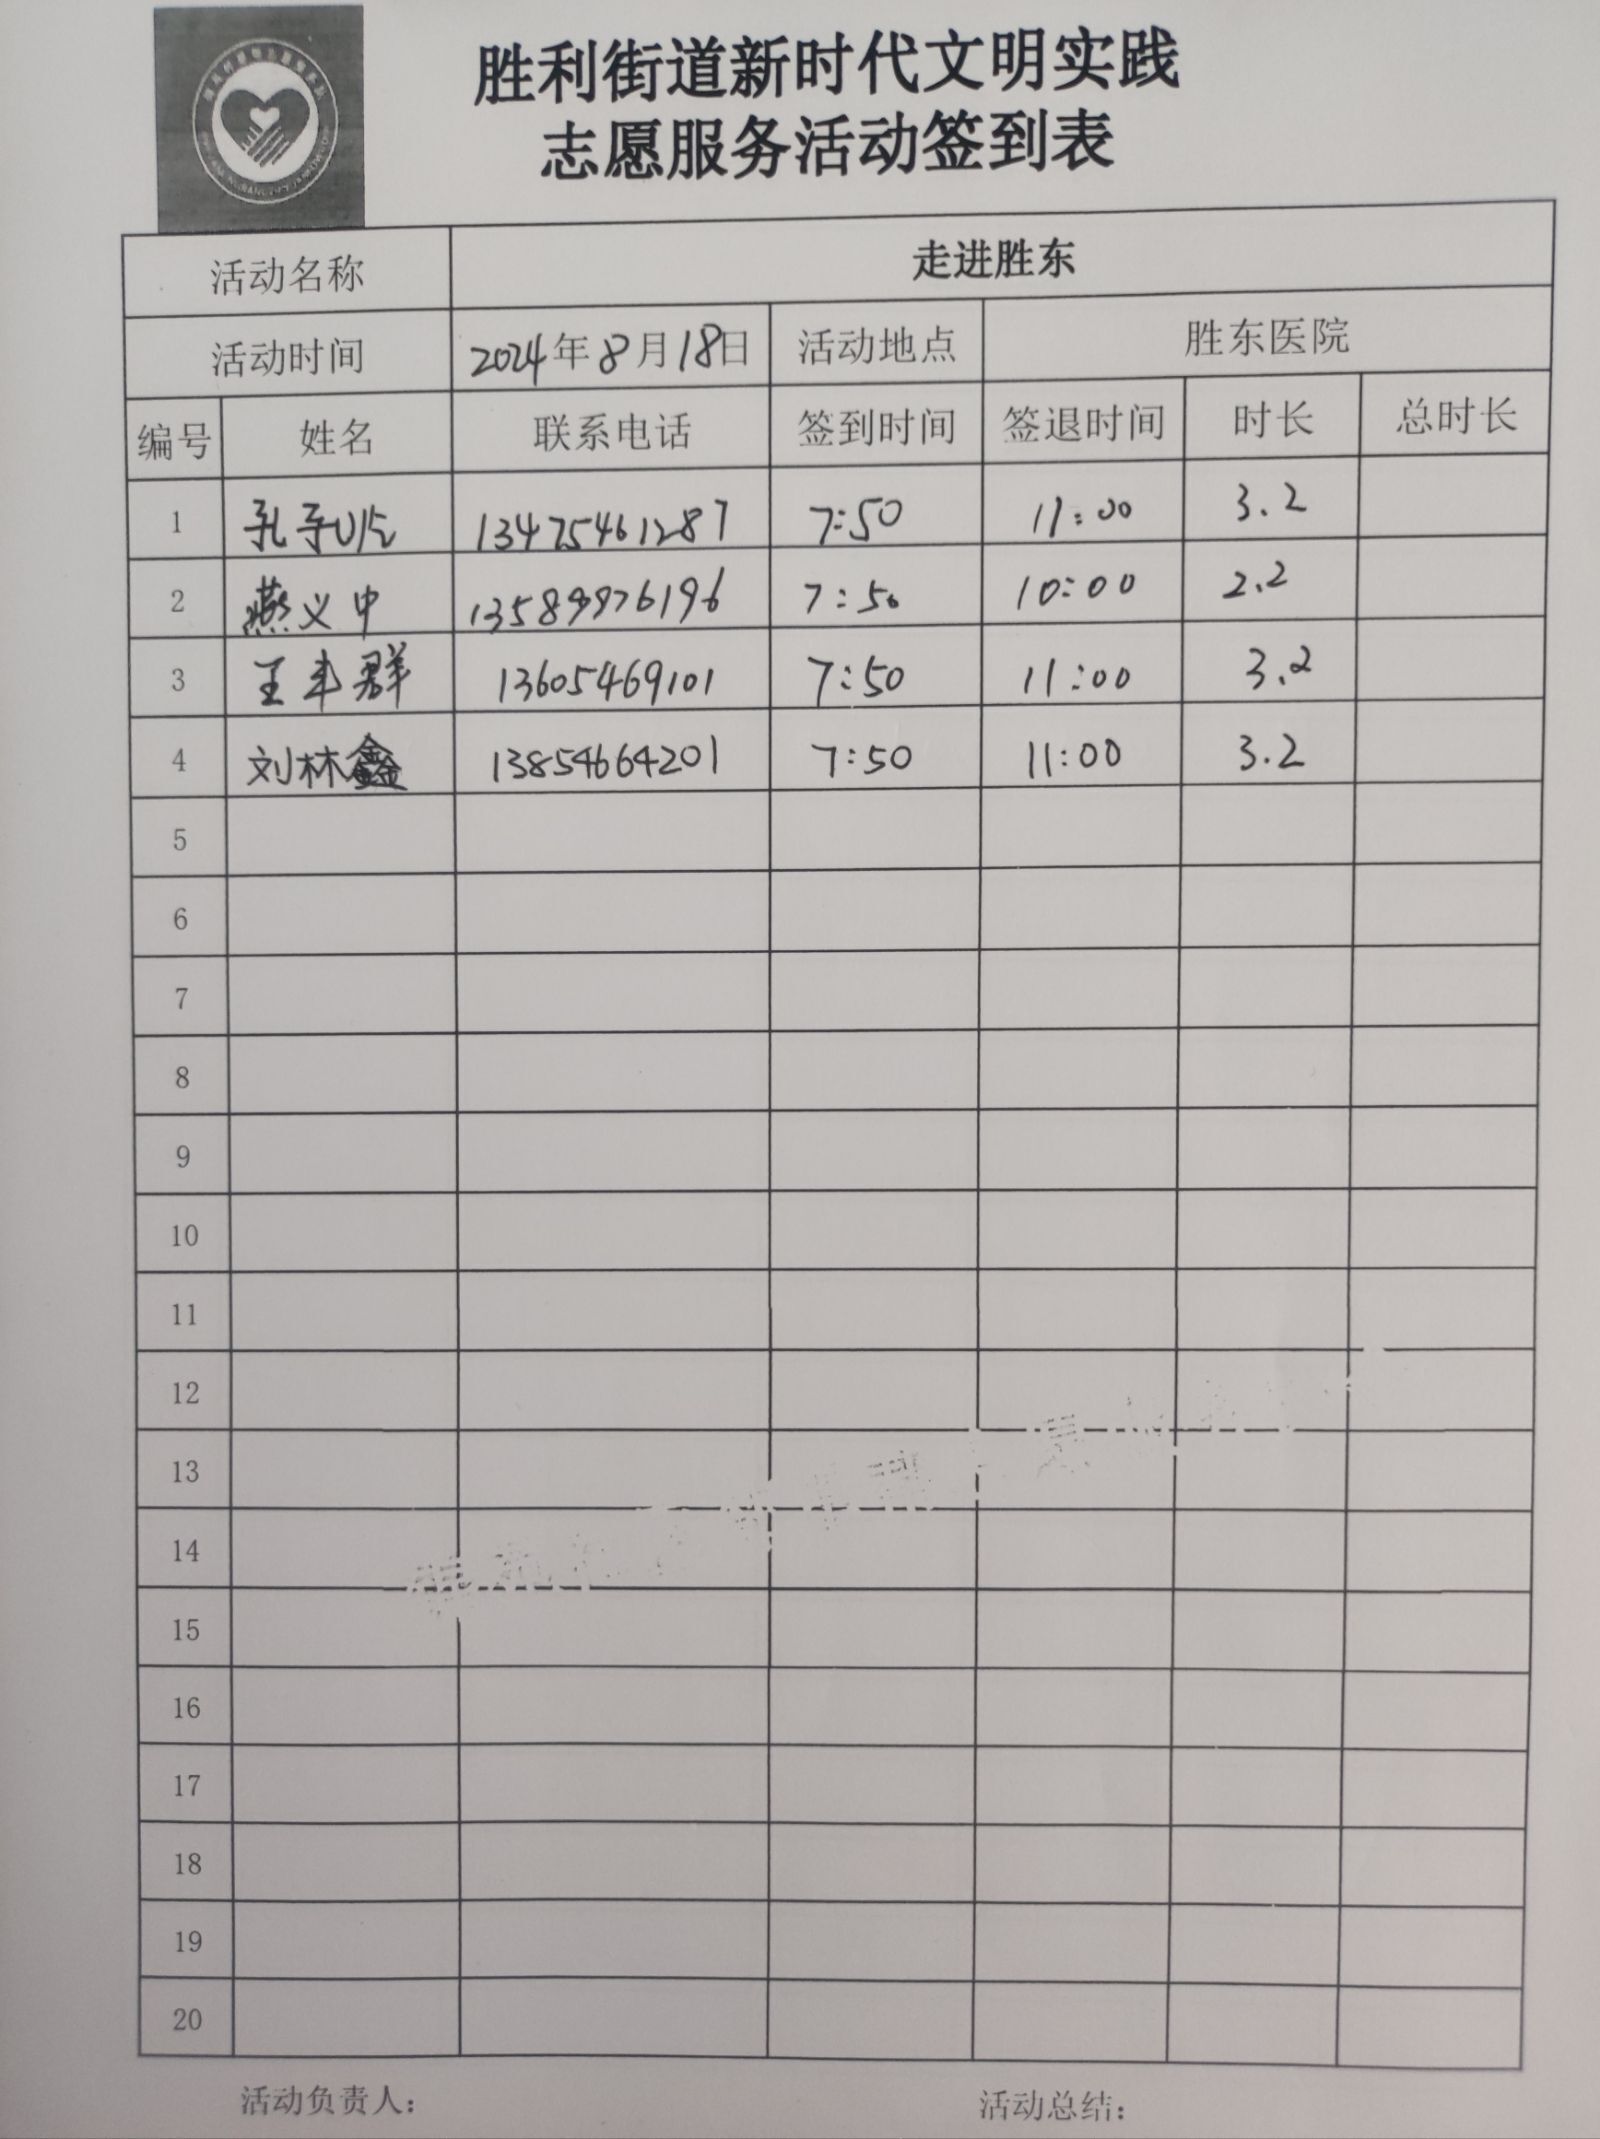 胜利街道新时代文明实践
志愿服务活动签到表
活动名称 走进胜东
活动时间 2024年8月18日 活动地点 胜东医院
编号 姓名 联系电话 签到时间 签退时间 时长 总时长
1 孔予 13475461287 7:50 11:00 3.2
2 燕义中 13589976196 7:50 10:00 2.2
3 王丰群 13605469101 7:50 11:00 3.2
4 刘林鑫 13854664201 7:50 11:00 3.2
5
6
7
8
9
10
11
12
13
14
15
16
17
18
19
20
活动负责人： 活动总结：